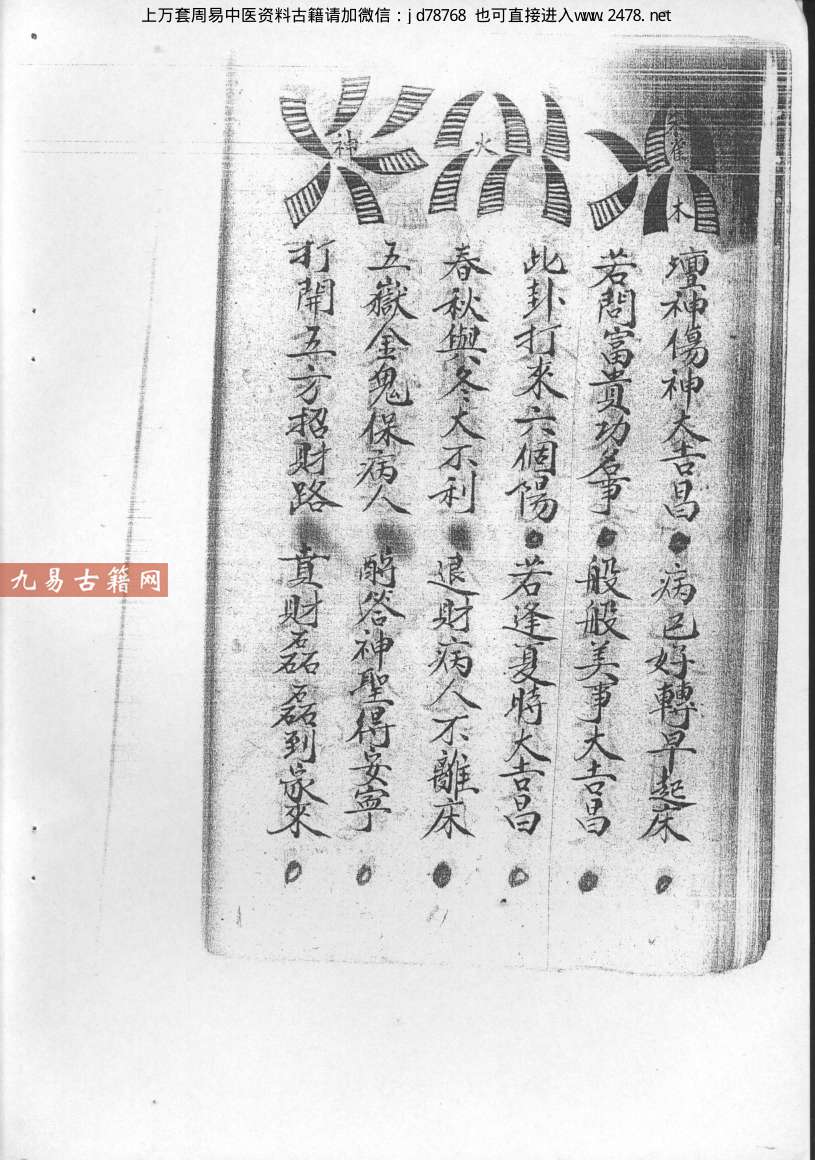 上万套周易中医资料古籍请加微信：jd78768 也可直接进入www.2478.net
朱雀
木
火
神
壇神傷神大吉昌 病已好轉早起床
若問富貴功名事 般般美事大吉昌
此卦打來六個陽 若逢夏時大吉昌
春秋與冬大不利 退財病人不離床
五嶽金鬼保病人 酧答神聖得安寧
打開五方招財路 真財磊磊到家來
九易古籍网